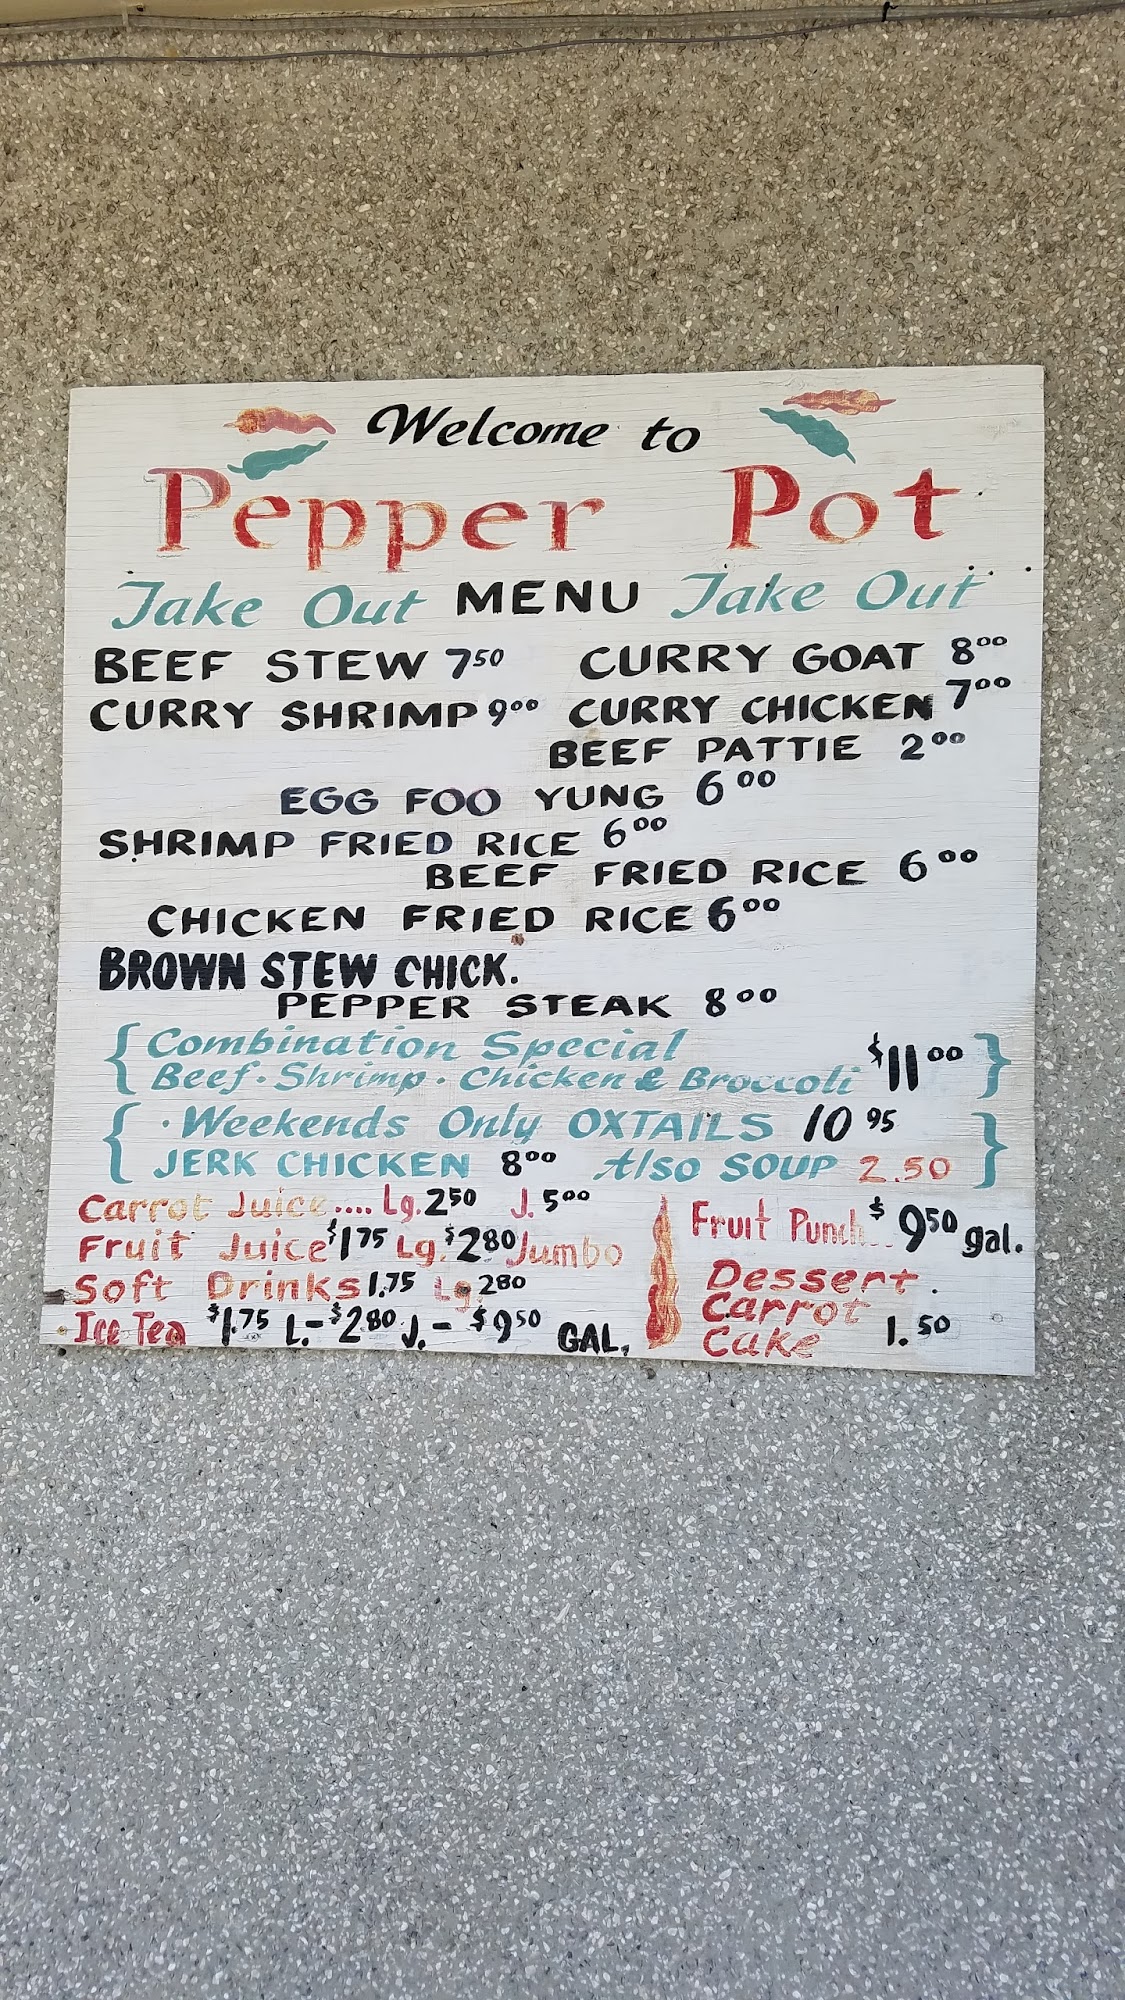 Welcome to
Pepper Pot
Take Out MENU Take Out
BEEF STEW 750 CURRY GOAT 800
CURRY SHRIMP 900 CURRY CHICKEN 700
BEEF PATTIE 200
EGG FOO YUNG 600
SHRIMP FRIED RICE 600
BEEF FRIED RICE 600
CHICKEN FRIED RICE 600
BROWN STEW CHICK.
PEPPER STEAK 800
{ Combination Special
Beef · Shrimp · Chicken & Broccoli $1100 }
{ · Weekends Only OXTAILS 10 95
JERK CHICKEN 800 Also SOUP 2.50 }
Carrot Juice.... Lg. 250 J. 500
Fruit Juice $175 Lg. $280 Jumbo
Soft Drinks 1.75 Lg. 280
Ice Tea $1.75 L.- $280 J.- $950 GAL.
Fruit Punch $950 gal.
Dessert.
Carrot
Cake 1.50